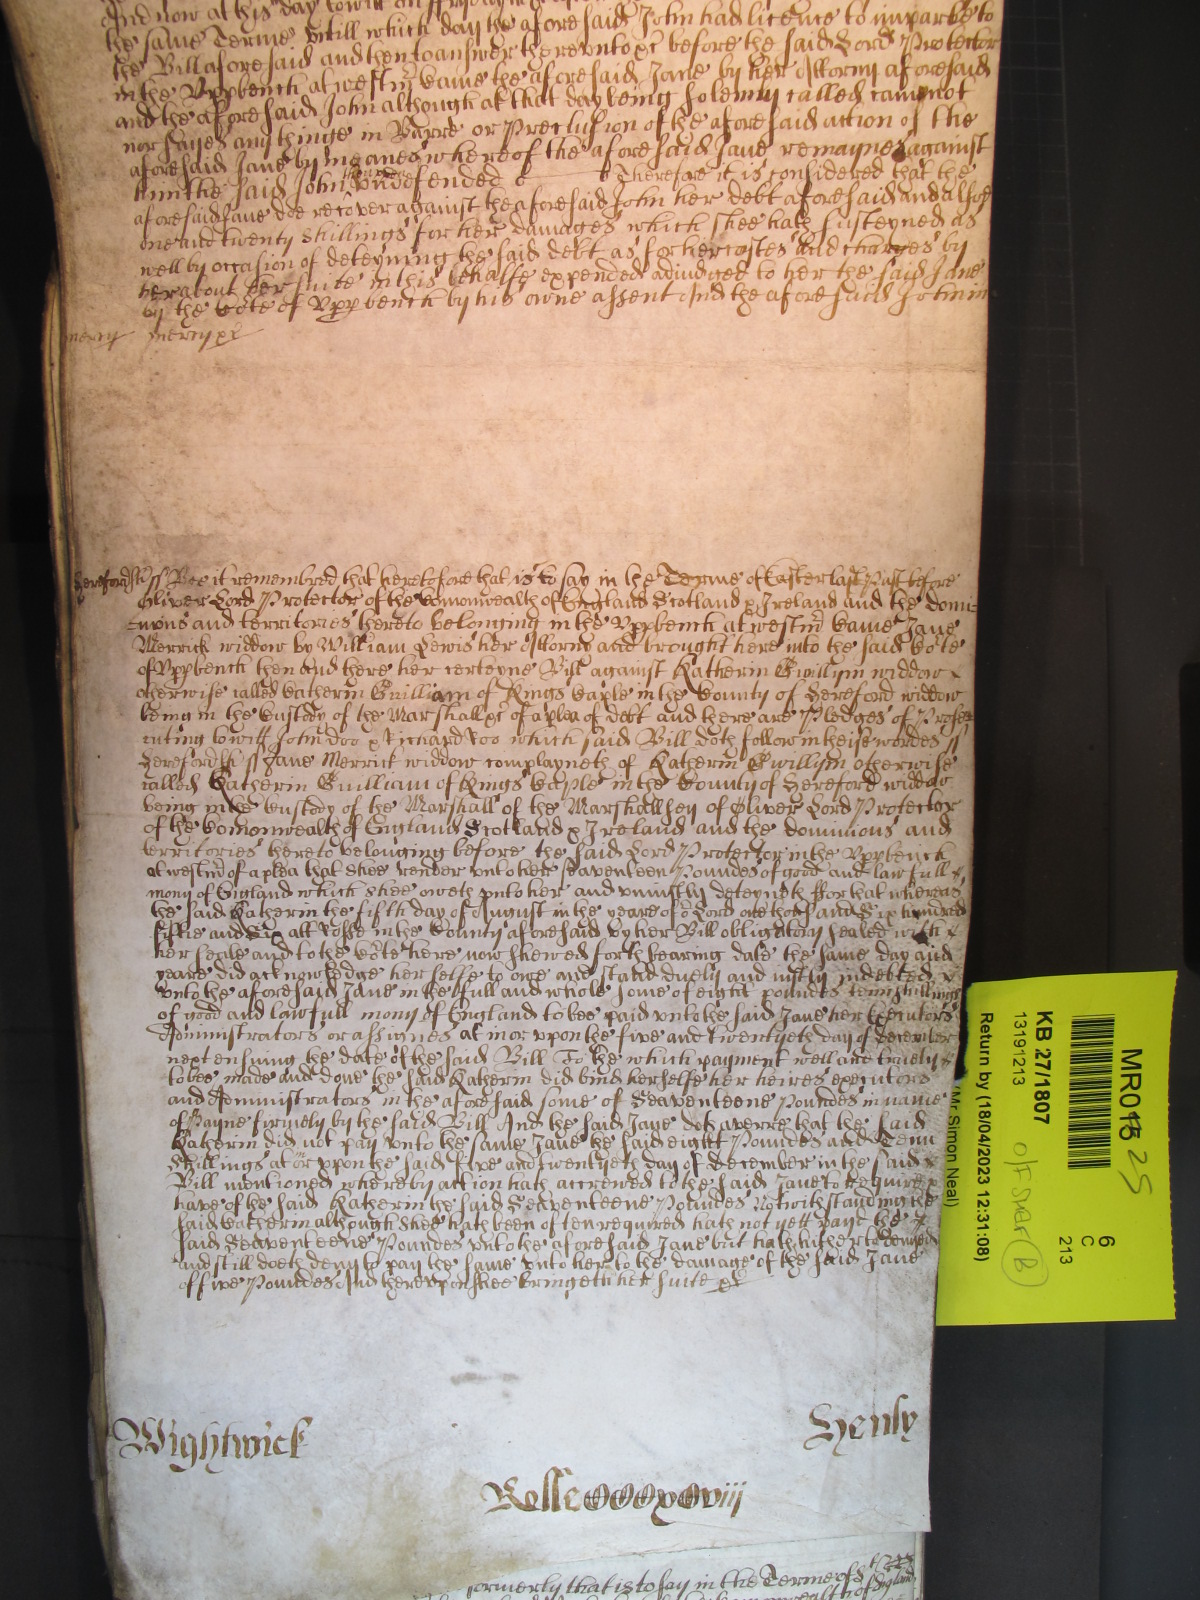 And now at this day towitt on ffryday
the same Terme Untill which day the aforesaid John had licence to imparle to
the Bill aforesaid and then to answer thereunto &c before the said Lord Protector
in the Upp bench at westmr Came the aforesaid Jane by her Attorny aforesaid
and the aforesaid John although at that day being solemnly called came not
nor sayes any thinge in Barre or Preclusion of the aforesaid action of the
aforesaid Jane by meanes whereof the aforesaid Jane remaynes against
him the said John thereupon undefended Therefore it is considered that the
aforesaid Jane doe recover against the aforesaid John her debt aforesaid and alsoe
one and twenty shillings for her damages which shee hath susteyned as
well by occasion of deteyning the said debt as for her costes And charges by
her about her suite in this behalfe expended adjudged to her the said Jane
by the Cote of Upp bench by his owne assent And the aforesaid John in
mercy mercy &c
Hereford ss Bee it remembred that heretofore that is to say in the Terme of Easter last Past before
Oliver Lord Protector of the Comonwealth of England Scotland & Ireland and the domi-
nions and territories thereto belonging in the Upp bench at westmr Came Jane
Merrick widdow by William Lewis her Attorny and brought here into the said Cote
of Upp bench then and there her certeyne Bill against Katherin Gwillym widdow
otherwise called Katherin Guilliam of Kings Caple in the County of Hereford widdow
being in the Custody of the Marshall &c of a plea of debt and there are Pledges of Prose-
cuting towitt John Doo & Richard Roo which said Bill doth follow in theise wordes ss
Hereford ss Jane Merrick widdow complayneth of Katherin Gwillym otherwise
called Katherin Guilliam of Kings Caple in the County of Hereford widdow
being in the Custody of the Marshall of the Marshallsey of Oliver Lord Protector
of the Comonwealth of England Scotland & Ireland and the dominions and
territories thereto belonging before the said Lord Protector in the Upp bench
at westmr of a plea that shee render unto her seaventeen Poundes of good and lawfull
mony of England which shee oweth unto her and uniustly deteyneth ffor that whereas
the said Katherin the fifth day of August in the yeare of or Lord one thousand Six hundred
fiftie and Six att Rosse in the County aforesaid by her Bill obligatory sealed with
her seale and to the Cote here now shewed forth bearing date the same day and
yeare did acknowledge her selfe to owe and stand duely and iustly indebted
unto the aforesaid Jane in the full and whole some of eight poundes tenn shillings
of good and lawfull mony of England to bee paid unto the said Jane her Executors
Administrators or assignes at in or upon the five and twentyeth day of December
next ensuing the date of the said Bill To the which payment well and truely
to bee made and done the said Katherin did bind herselfe her heires executors
and Administrators in the aforesaid some of Seaventeene Poundes in name
of Payne firmely by the said Bill And the said Jane doth averre that the said
Katherin did not pay unto the same Jane the said eight Poundes and Tenn
Shillings at or upon the said five and twentyeth day of December in the said
Bill mentioned whereby action hath accrewed to the said Jane to require
have of the said Katherin the said Seaventeene Poundes Notwithstanding the
said Katherin although shee hath been often required hath not yett payd the
said Seaventeene Poundes unto the aforesaid Jane but hath hitherto denied
and still doeth deny to pay the same unto her to the damage of the said Jane
of five Poundes And thereupon shee bringeth her suite &c
Wightwick Henly
Rolle CCCxCviii
formerly that is to say in the Terme of S
MR018 25
6
C
213
KB 27/1807
13191213
o/f Shelf (B)
Return by (18/04/2023 12:31:08)
(Mr Simon Neal)